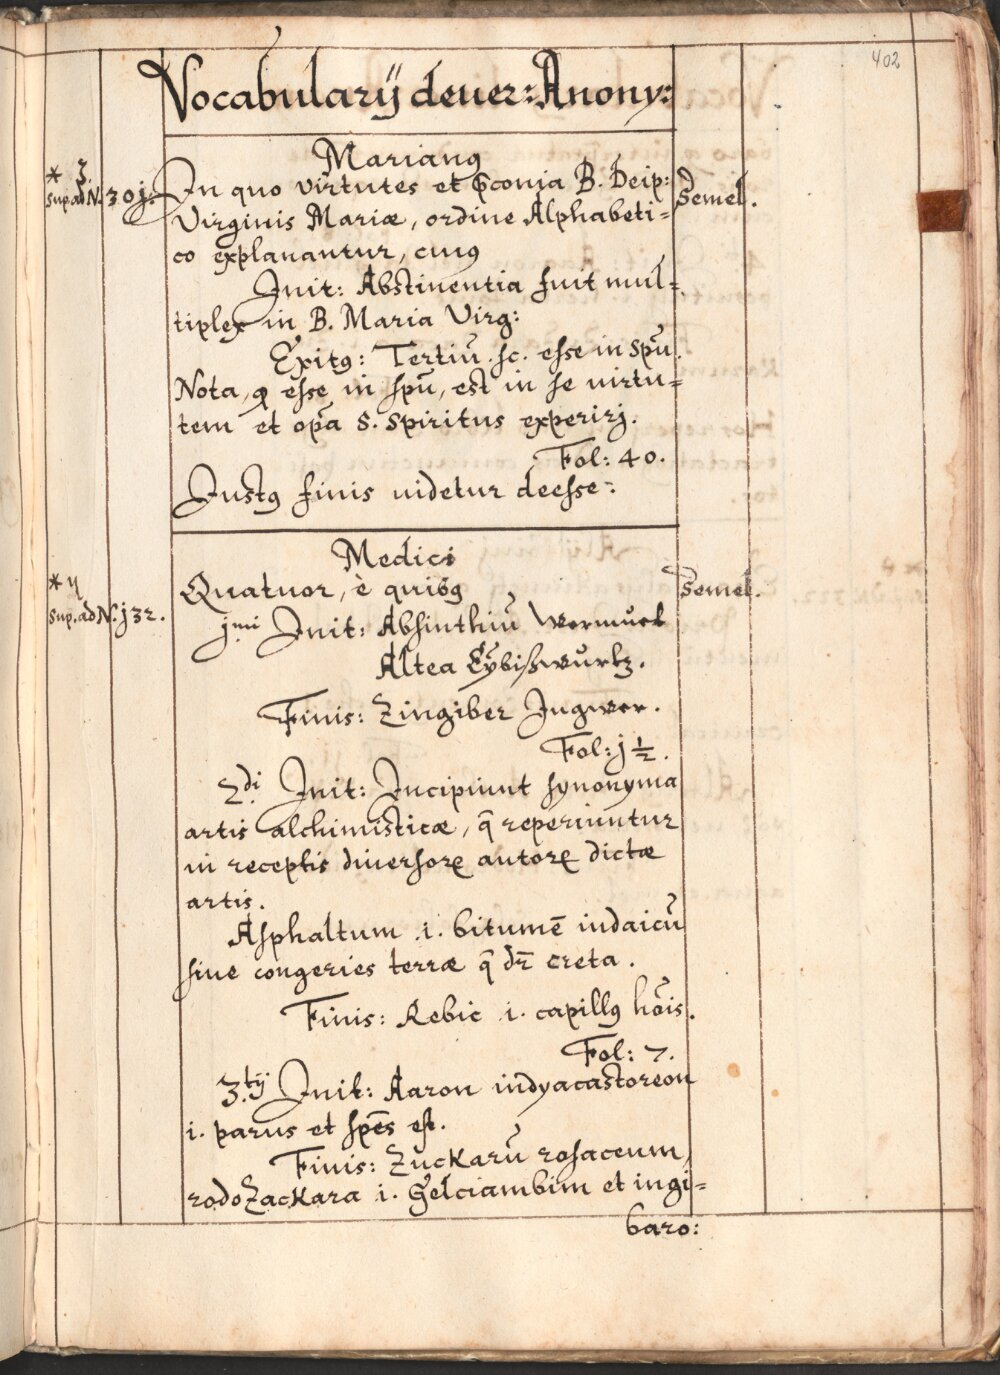 402
Vocabularÿ deuer: Anony:
Marianꝰ
* 3. sup. ad N. 30j. In quo virtutes et p̄conia B. Deip: Semel.
Virginis Mariæ, ordine Alphabeti=
co explanantur, cuiꝰ
Init: Abstinentia fuit mul=
tiplex in B. Maria Virg:
Exitꝰ: Tertiū .sc. esse in spū.
Nota, ꝙ esse in spū, est in se uirtu=
tem et oꝑa S. Spiritus experirj.
Fol: 40.
Justꝰ finis uidetur deesse:
Medici
* 4 sup. ad N. j32. Quatuor, è quibꝰ Semel.
jmi Init: Absinthiū Wermuet
Altea Eÿbißwurtz.
Finis: Zingiber Ingwer.
Fol: j ½.
2di Init: Incipiunt synonyma
artis alchimisticæ, q̄ reperiuntur
in receptis diuersoꝝ autoꝝ dictæ
artis.
Asphaltum .i. bitumē iudaicū
siue congeries terræ q̄ dr̄ creta.
Finis: Rebic .i. capillꝰ hōis.
Fol: 7.
3.tÿ Init: Aaron indyacastoreon
i. parus et spēs est.
Finis: Zuckarū rosaceum,
rodoZackara i. Gelciambim et ingi=
baro: